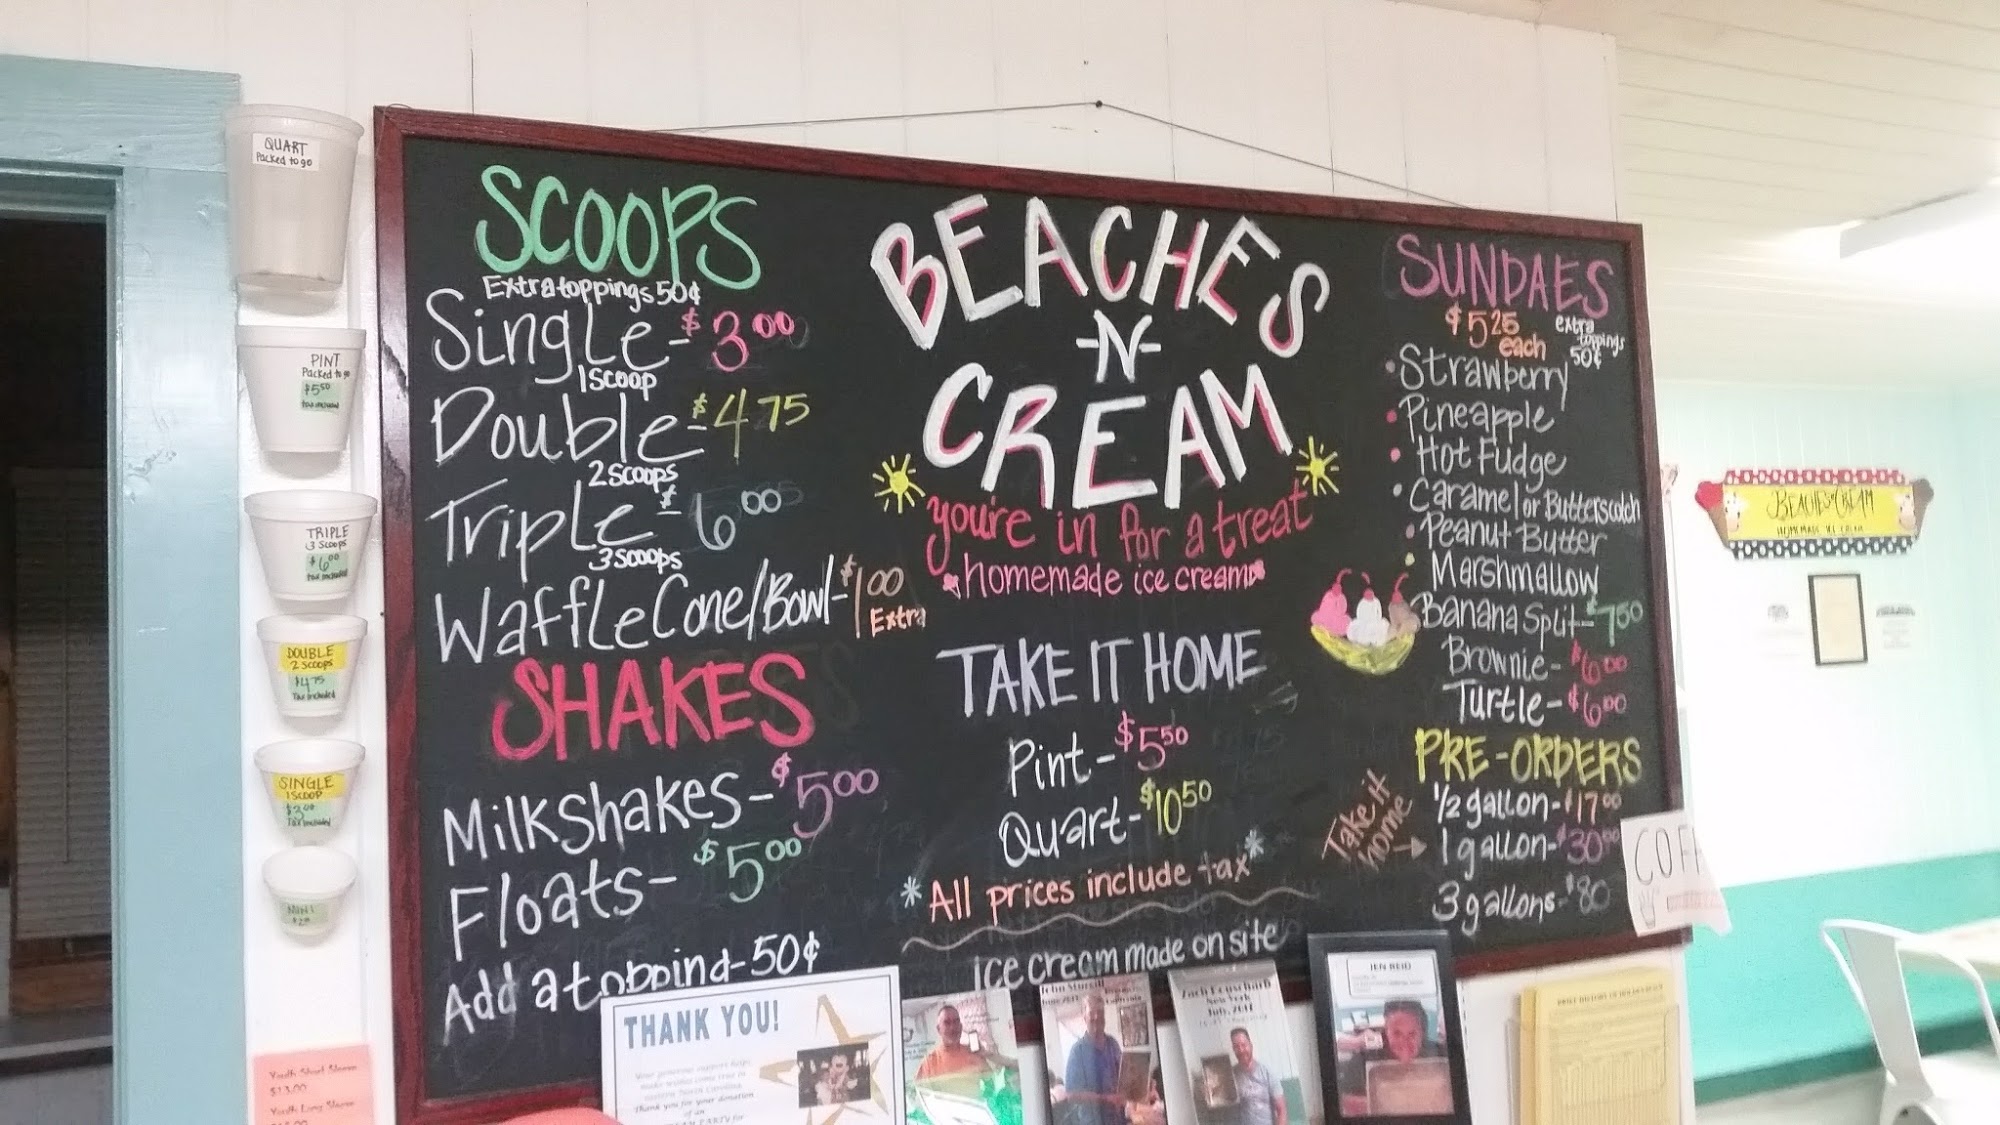 QUART
Packed to go
PINT
Packed to go
$5.50
tax included
TRIPLE
3 Scoops
$6.00
tax included
DOUBLE
2 Scoops
$4.75
Tax included
SINGLE
1 SCOOP
$3.00
Tax included
MINI
SCOOPS
Extra toppings 50¢
Single- $3.00
1 scoop
Double- $4.75
2 Scoops
Triple- $6.00
3 scoops
Waffle Cone/Bowl- $1.00
Extra
SHAKES
Milkshakes- $5.00
Floats- $5.00
Add a topping-50¢
BEACHES
-N-
CREAM
you're in for a treat
homemade ice cream
TAKE IT HOME
Pint- $5.50
Quart- $10.50
*All prices include tax*
ice cream made on site
SUNDAES
$5.25
each
extra
toppings
50¢
• Strawberry
• Pineapple
• Hot Fudge
• Caramel or Butterscotch
• Peanut Butter
• Marshmallow
Banana Split- $7.50
Brownie- $6.00
Turtle- $6.00
PRE-ORDERS
Take it
home
1/2 gallon- $17.00
1 gallon- $30.00
3 gallons- $80
COFF
BEACHES N CREAM
HOMEMADE ICE CREAM
THANK YOU!
Your generous support helps
make wishes come true in
eastern North Carolina
Thank you for your donation
of an
John Sturgill
Zach Bouschard
New York
July, 2017
JEN REID
Youth Short Sleeve
$13.00
Youth Long Sleeve